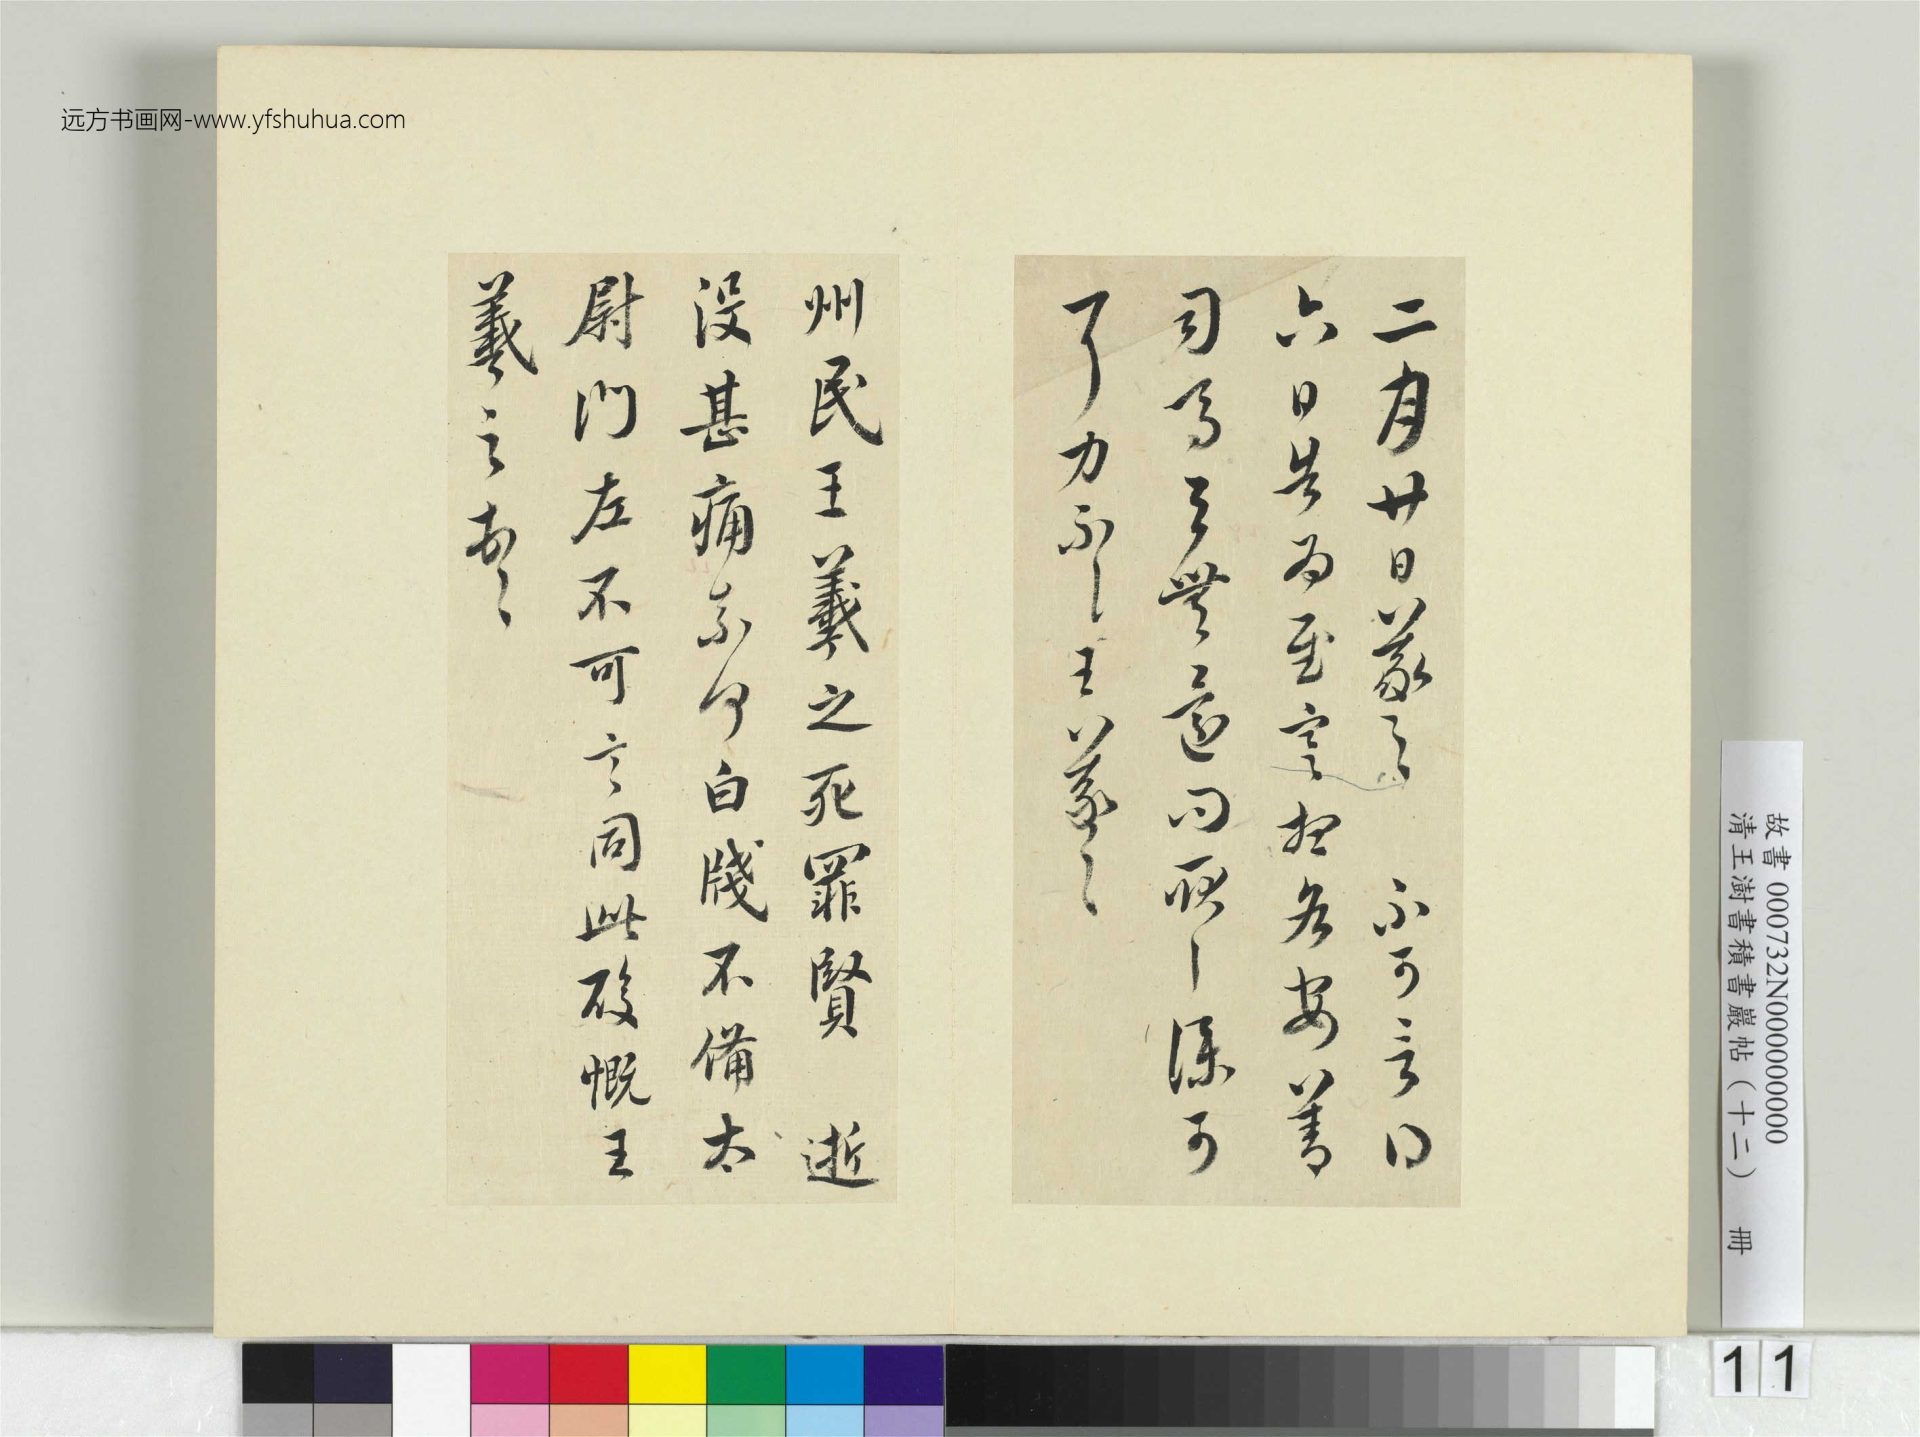 远方书画网-www.yfshuhua.com
二月廿日羲之 不可言得
六日告為慰寒想各安善
司馬
了力不一一王羲之
州民王羲之死罪賢 逝
没甚痛奈何白牋不備太
尉門左不可言同此酸慨王
羲之
故書 000732N000000000
清王澍書積書巖帖(十二) 冊
11